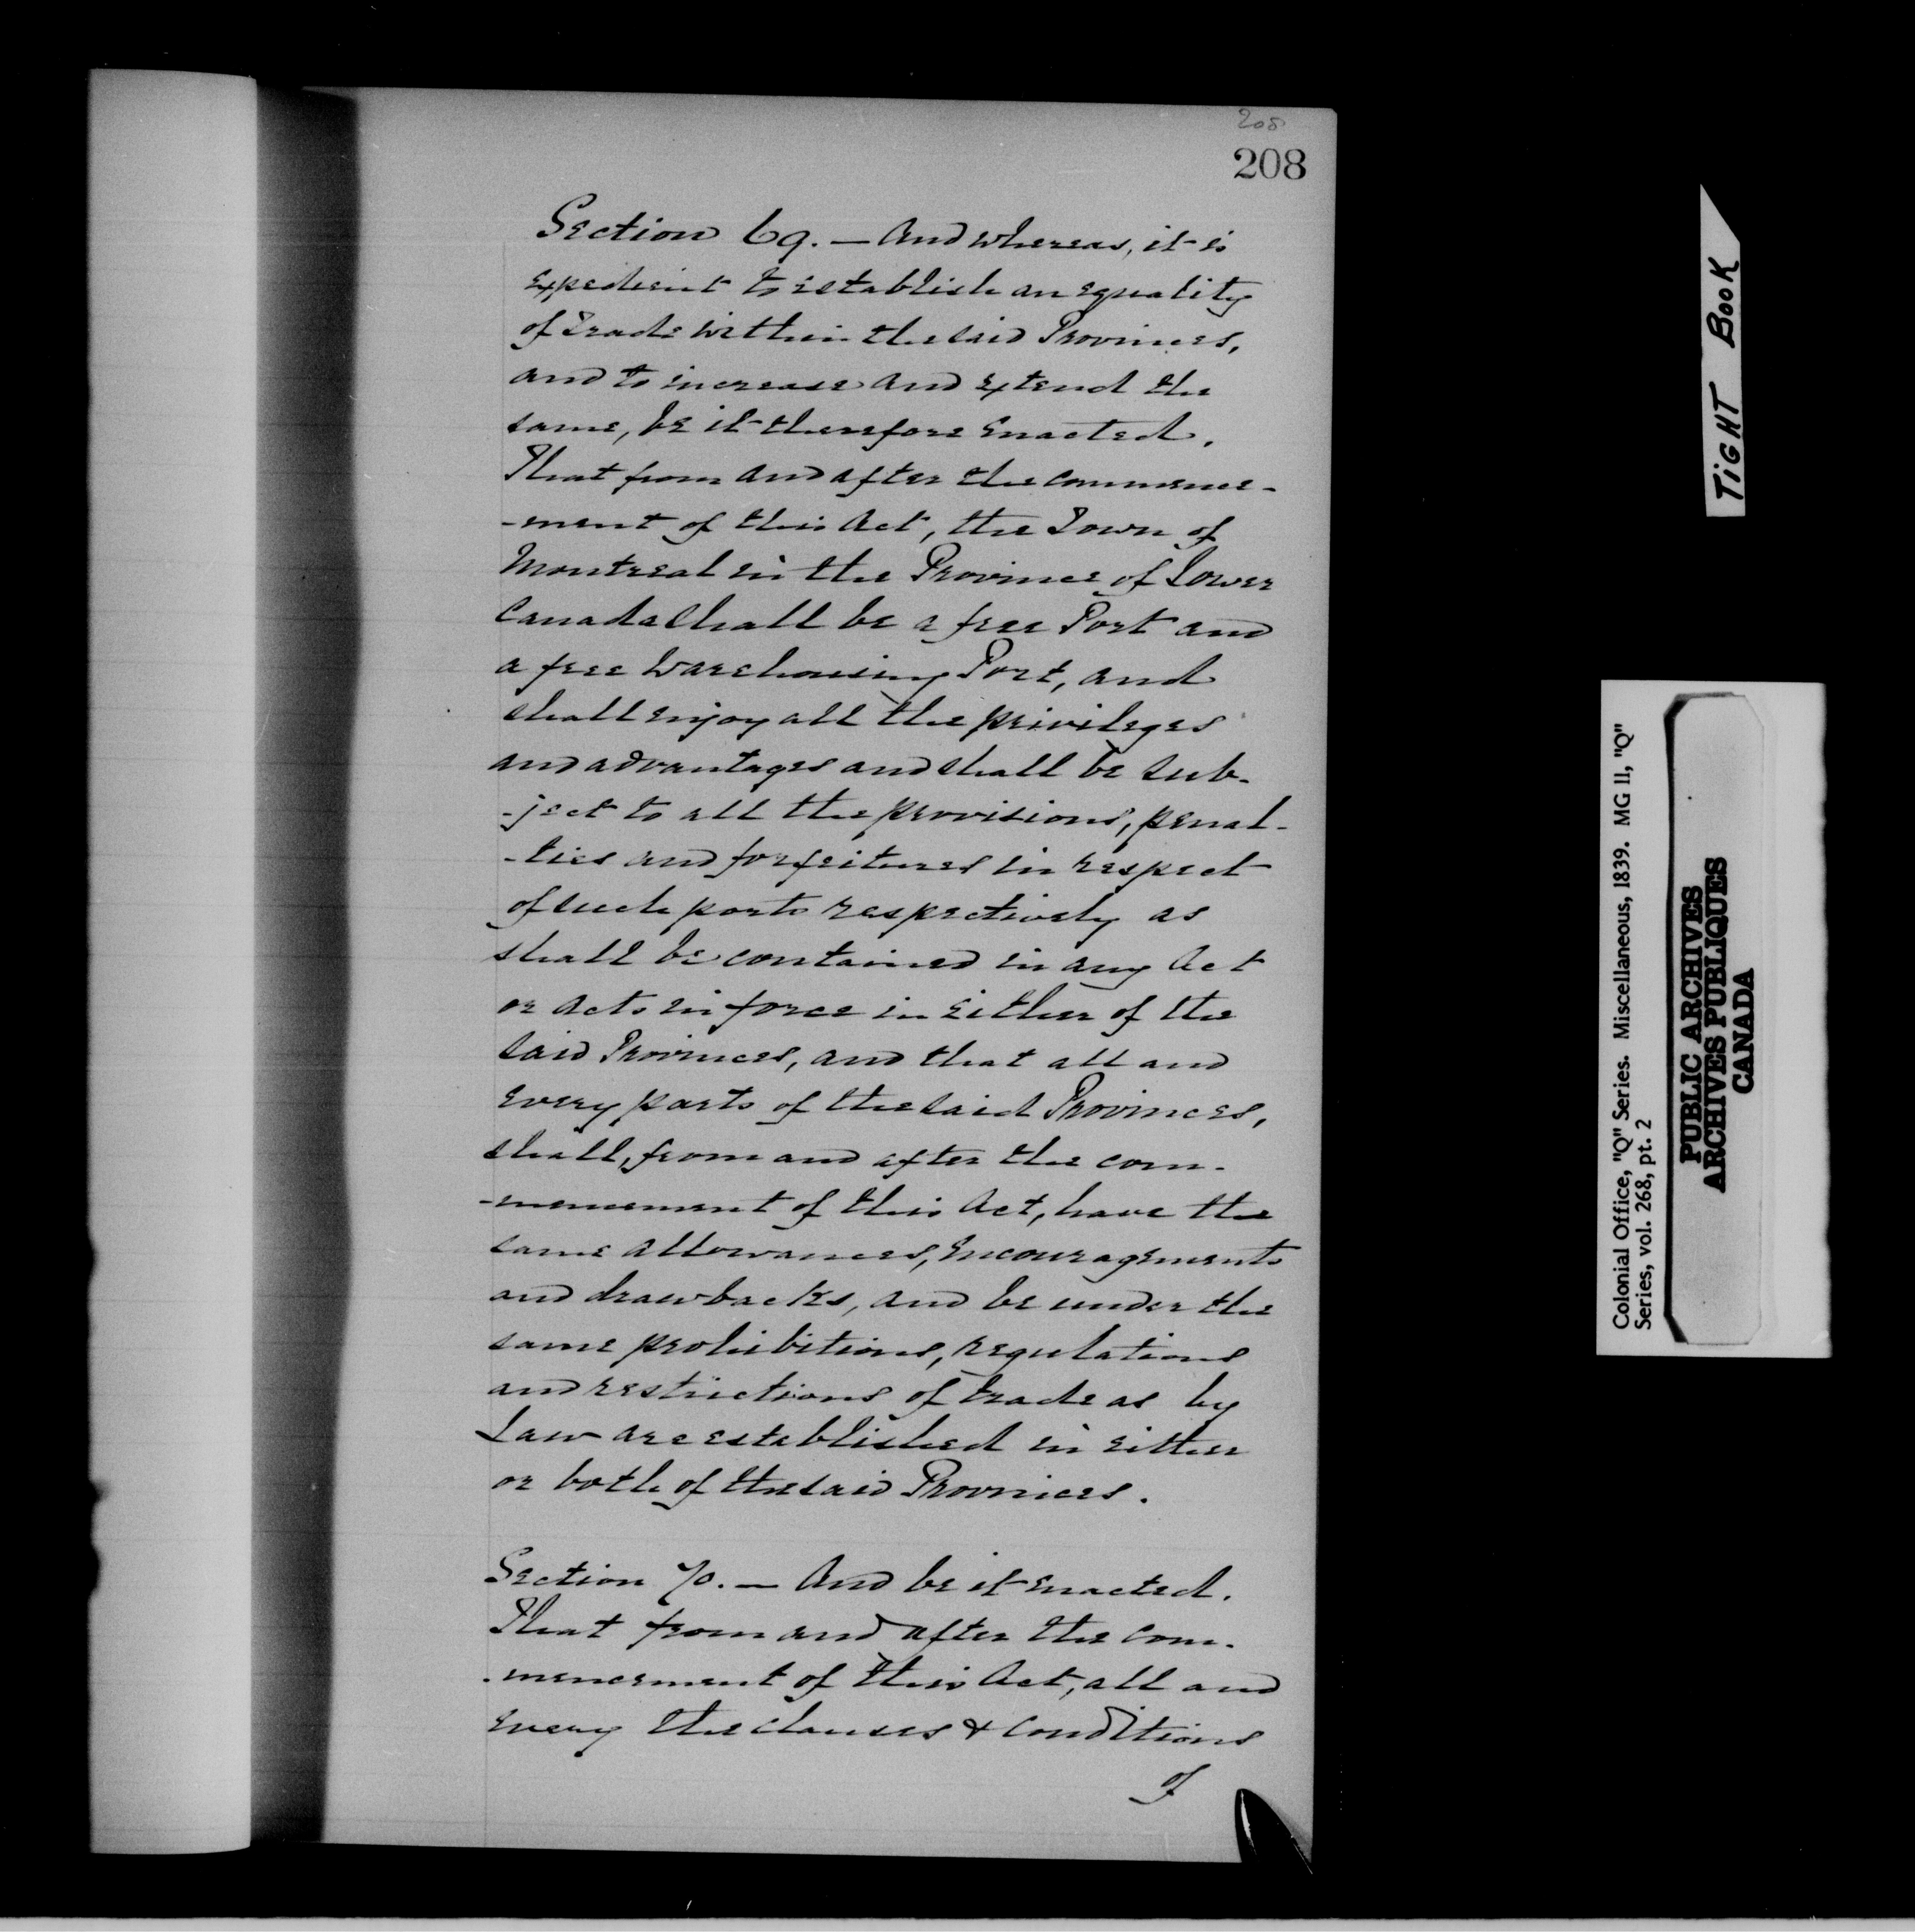 208
208
Section 69. — And whereas, it is
expedient to establish an equality
of Trade within the said Provinces,
and to increase and extend the
same, be it therefore Enacted.
That from and after the commence-
-ment of this Act, the Town of
Montreal in the Province of Lower
Canada shall be a free Port and
a free Warehousing Port, and
shall enjoy all the privileges
and advantages and shall be sub-
-ject to all the provisions, penal-
-ties and forfeitures in respect
of such ports respectively as
shall be contained in any Act
or Acts in force in Either of the
said Provinces, and that all and
every parts of the said Provinces,
shall, from and after the com-
-mencement of this Act, have the
same allowances, Encouragements
and drawbacks, and be under the
same prohibitions, regulations
and restrictions of trade as by
Law are established in either
or both of the said Provinces.
Section 70. — And be it Enacted.
That from and after the com-
-mencement of this Act, all and
every the clauses & conditions
of
TIGHT BOOK
Colonial Office, "Q" Series. Miscellaneous, 1839. MG 11, "Q"
Series, vol. 268, pt. 2
PUBLIC ARCHIVES
ARCHIVES PUBLIQUES
CANADA